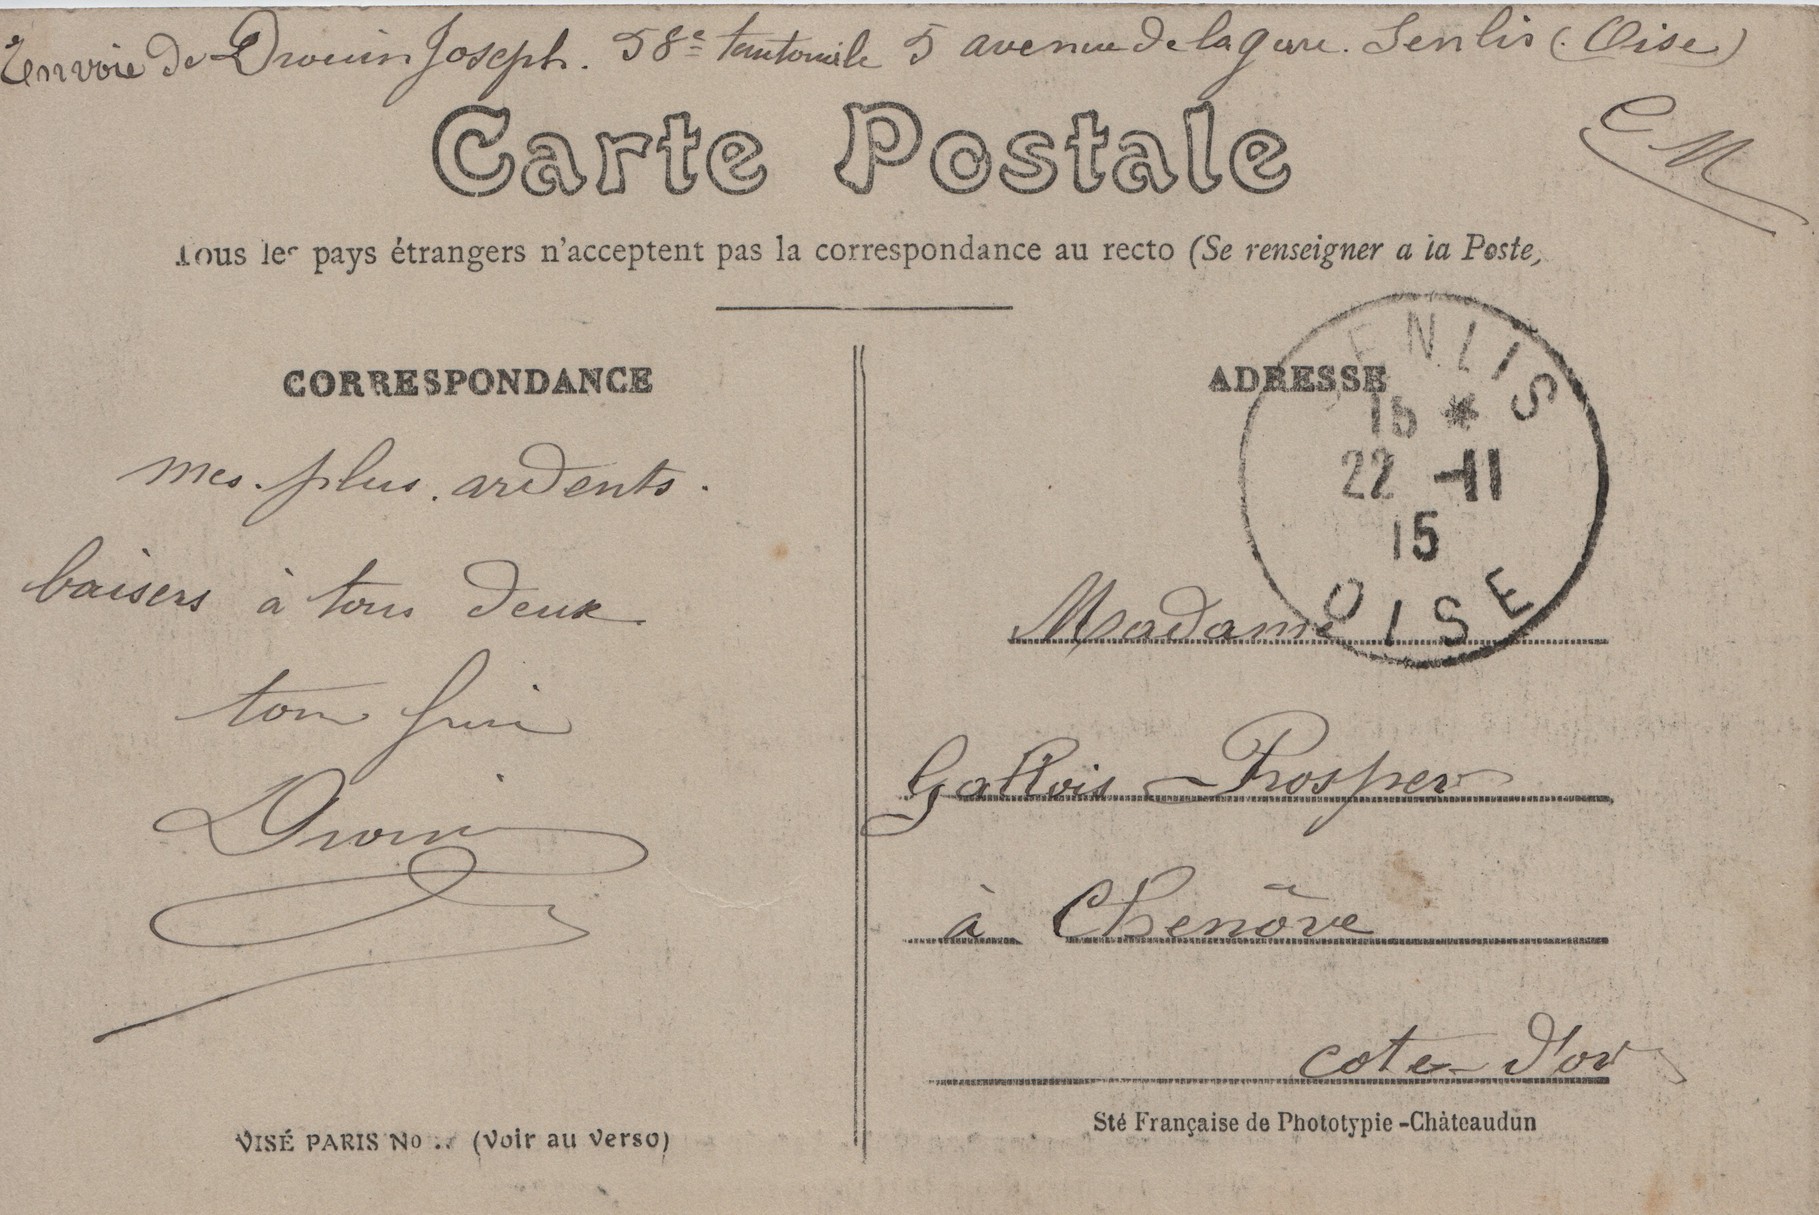 Envoie de Drouin Joseph. 58e territoriale 5 avenue de la gare. Senlis (Oise)
CM
Carte Postale
Tous les pays étrangers n'acceptent pas la correspondance au recto (Se renseigner a la Poste,
CORRESPONDANCE
mes plus ardents.
baisers à tous deux.
ton
Drouin
VISÉ PARIS No .. (Voir au verso)
ADRESSE
SENLIS
15 *
22 -11
15
OISE
Madame
Gallois - Prosper
à Chenôve
cote-d'or
Sté Française de Phototypie - Châteaudun